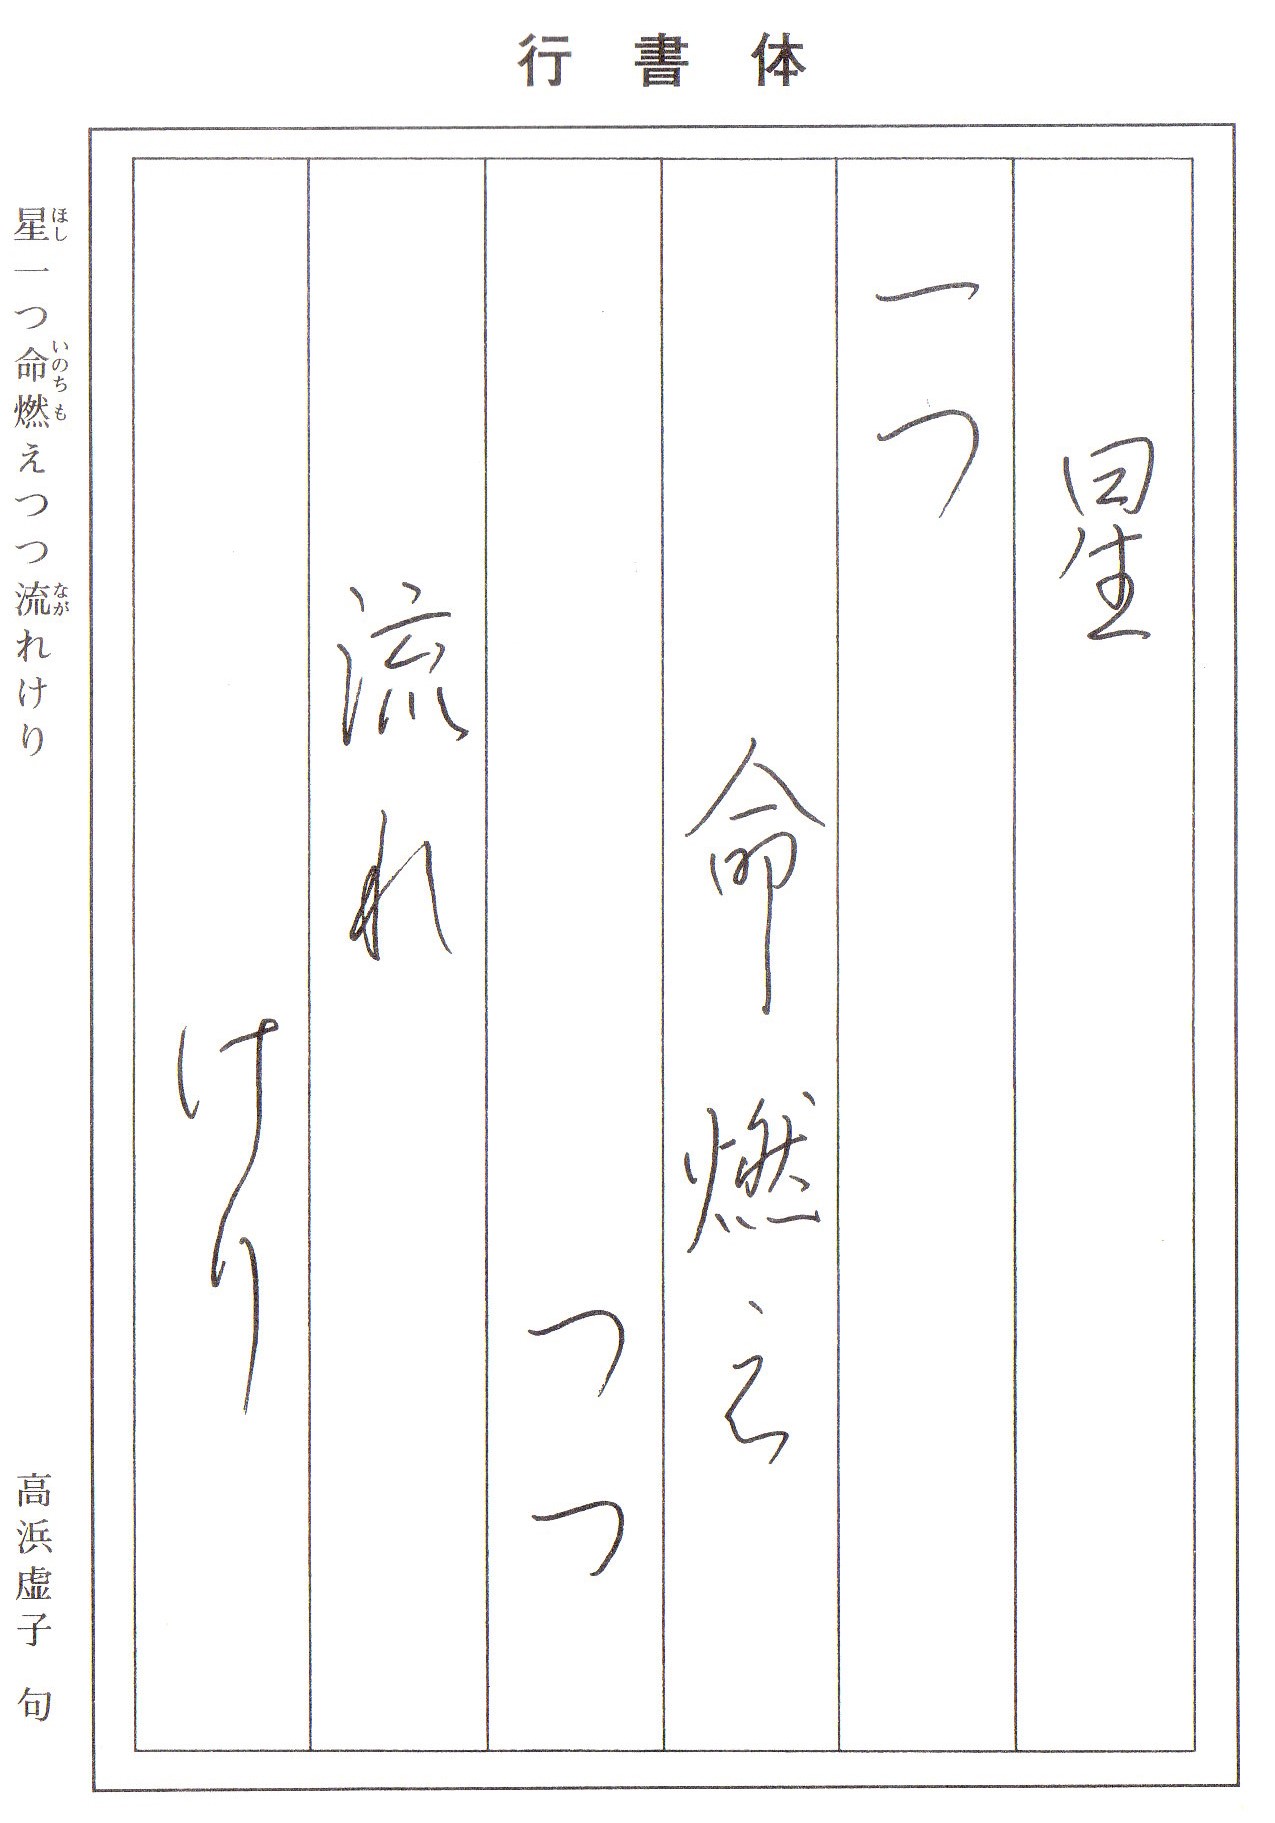 行書体
星
一つ
命燃え
つつ
流れ
けり
星一つ命燃えつつ流れけり
ほし
いのち
も
なが
高浜虚子 句